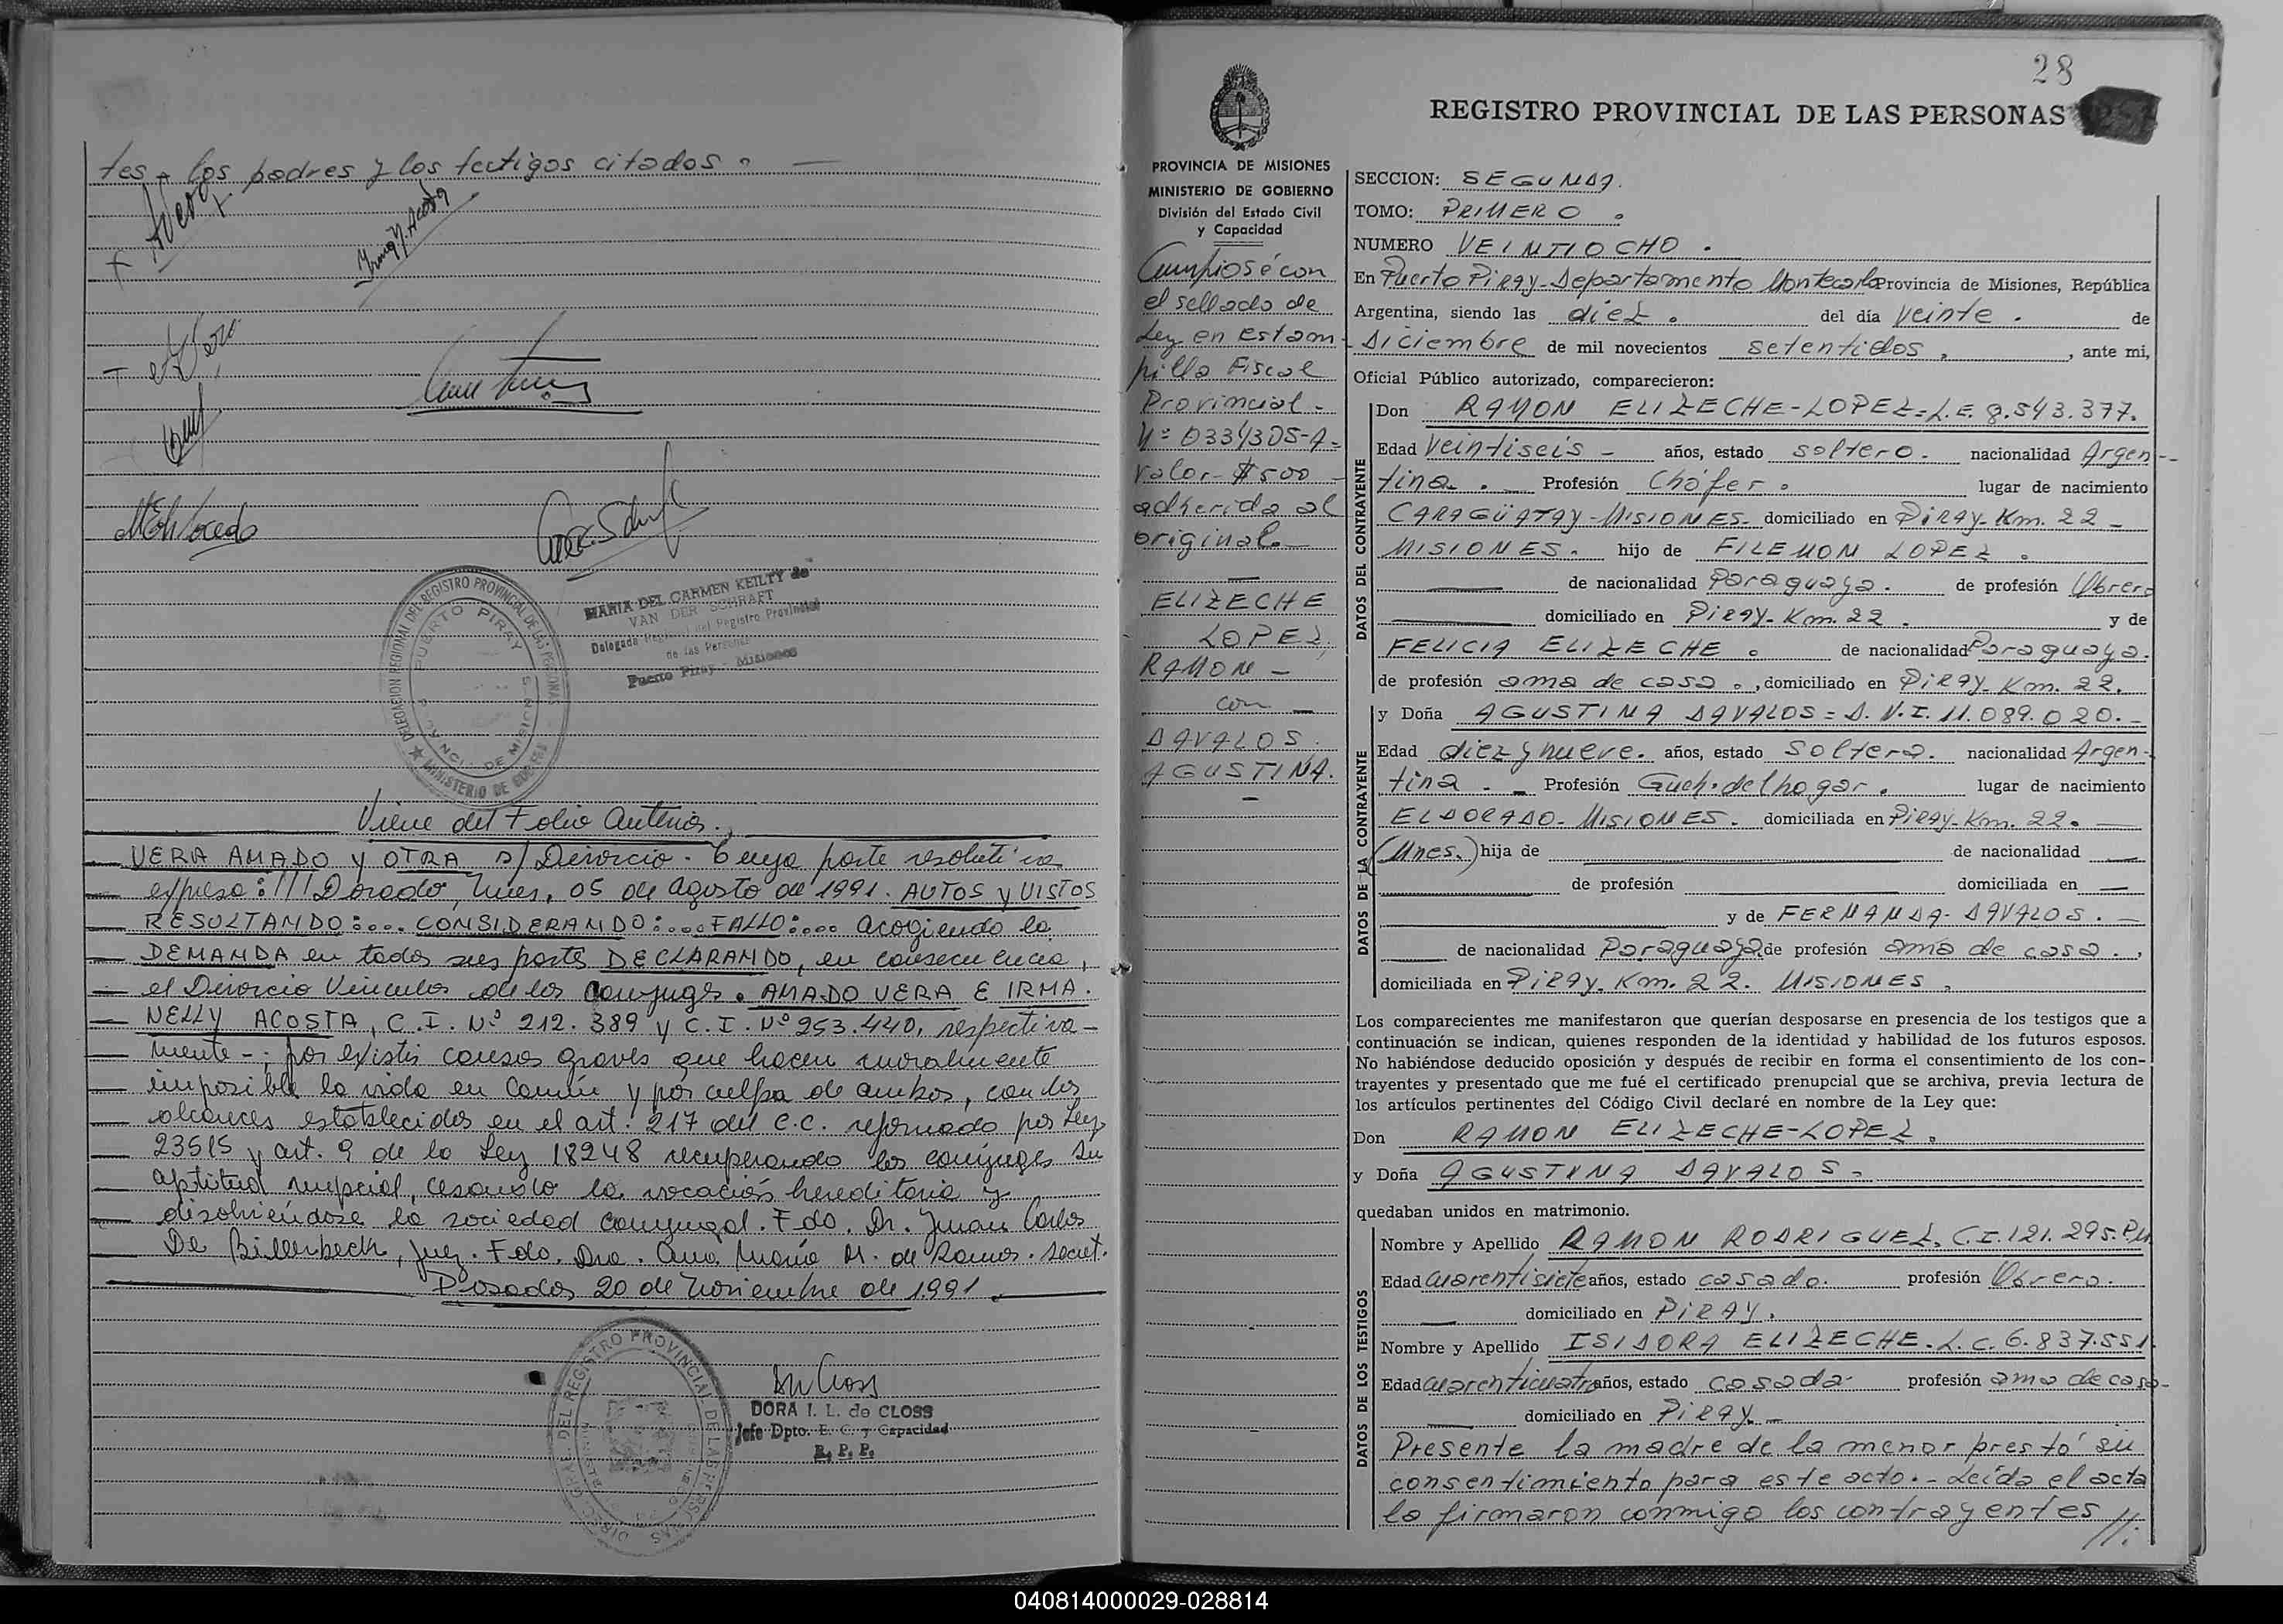 tes - los padres y los testigos citados. —
Irma N. Acosta
DELEGACION REGIONAL DEL REGISTRO PROVINCIAL DE LAS PERSONAS
PUERTO PIRAY
PROVINCIA DE MISIONES
MINISTERIO DE GOBIERNO
MARIA DEL CARMEN KEILTY de
VAN DER SCHRAFT
Delegada Regional del Registro Provincial
de las Personas
Puerto Piray - Misiones
Viene del Folio Anterior.
VERA AMADO y OTRA s/ Divorcio. Cuya parte resolutiva
expresa: /// Dorado, Mnes, 05 de agosto de 1991. AUTOS y VISTOS
RESULTANDO:... CONSIDERANDO:... FALLO:... acogiendo la
DEMANDA en todas sus partes DECLARANDO, en consecuencia,
el Divorcio Vincular de los conyuges. AMADO VERA E IRMA.
NELLY ACOSTA, C.I. Nº 212.389 y C.I. Nº 253.440, respectiva-
mente -; por existir causas graves que hacen moralmente
imposible la vida en común y por culpa de ambos, con los
alcances establecidos en el art. 217 del C.C. reformado por Ley
23515 y art. 9 de la Ley 18248 recuperando los conyuges su
aptitud nupcial, cesando la vocación hereditaria y
disolviendose la sociedad conyugal. Fdo. Dr. Juan Carlos
De Billerbeck, Juez. Fdo. Dra. Ana María M. de Ramos. Secret.
Posadas 20 de Noviembre de 1991.
DORA I. L. de CLOSS
Jefe Dpto. E. C. y Capacidad
R. P. P.
28
REGISTRO PROVINCIAL DE LAS PERSONAS
PROVINCIA DE MISIONES
MINISTERIO DE GOBIERNO
División del Estado Civil
y Capacidad
Cumpliose con
el sellado de
Ley en Estam-
pilla Fiscal
Provincial-
Nº 0334305-A=
valor-$500-
adherida al
original-
ELIZECHE
LOPEZ,
RAMON -
con -
DAVALOS.
AGUSTINA.
SECCION: SEGUNDA.
TOMO: PRIMERO.
NUMERO VEINTIOCHO.
En Puerto Piray-Departamento Montecarlo Provincia de Misiones, República
Argentina, siendo las diez. del día veinte. de
Diciembre de mil novecientos setentidos, , ante mi,
Oficial Público autorizado, comparecieron:
DATOS DEL CONTRAYENTE
Don RAMON ELIZECHE-LOPEZ=L.E. 8.543.377.
Edad veintiseis - años, estado soltero. nacionalidad Argen-
tina. - Profesión Chófer. lugar de nacimiento
CARAGÜATAY-MISIONES- domiciliado en PIRAY-Km. 22 -
MISIONES. hijo de FILEMON LOPEZ.
de nacionalidad Paraguaya. de profesión Obrero
domiciliado en Piray-Km. 22. y de
FELICIA ELIZECHE. de nacionalidad Paraguaya.
de profesión ama de casa., domiciliado en PIRAY-Km. 22.
DATOS DE LA CONTRAYENTE
y Doña AGUSTINA DAVALOS=D.N.I. 11.089.020.-
Edad diez y nueve. años, estado Soltera. nacionalidad Argen-
tina. - Profesión Queh. del hogar. lugar de nacimiento
ELDORADO-MISIONES. domiciliada en Piray-Km. 22. —
(Mnes.) hija de — de nacionalidad —
de profesión — domiciliada en —
y de FERNANDA-DAVALOS. -
de nacionalidad Paraguaya de profesión ama de casa.,
domiciliada en Piray. Km. 22. MISIONES,
Los comparecientes me manifestaron que querían desposarse en presencia de los testigos que a
continuación se indican, quienes responden de la identidad y habilidad de los futuros esposos.
No habiéndose deducido oposición y después de recibir en forma el consentimiento de los con-
trayentes y presentado que me fué el certificado prenupcial que se archiva, previa lectura de
los artículos pertinentes del Código Civil declaré en nombre de la Ley que:
Don RAMON ELIZECHE-LOPEZ.
y Doña AGUSTINA DAVALOS=
quedaban unidos en matrimonio.
DATOS DE LOS TESTIGOS
Nombre y Apellido RAMON RODRIGUEZ, C.I. 121.295.PM
Edad cuarentisiete años, estado casado. profesión Obrero.
domiciliado en PIRAY.
Nombre y Apellido ISIDORA ELIZECHE. L.C. 6.837.551
Edad cuarenticuatro años, estado casada- profesión ama de casa-
domiciliado en Piray. -
Presente la madre de la menor prestó su
consentimiento para este acto.- Leída el acta
la firmaron conmigo los contrayentes //.
040814000029-028814